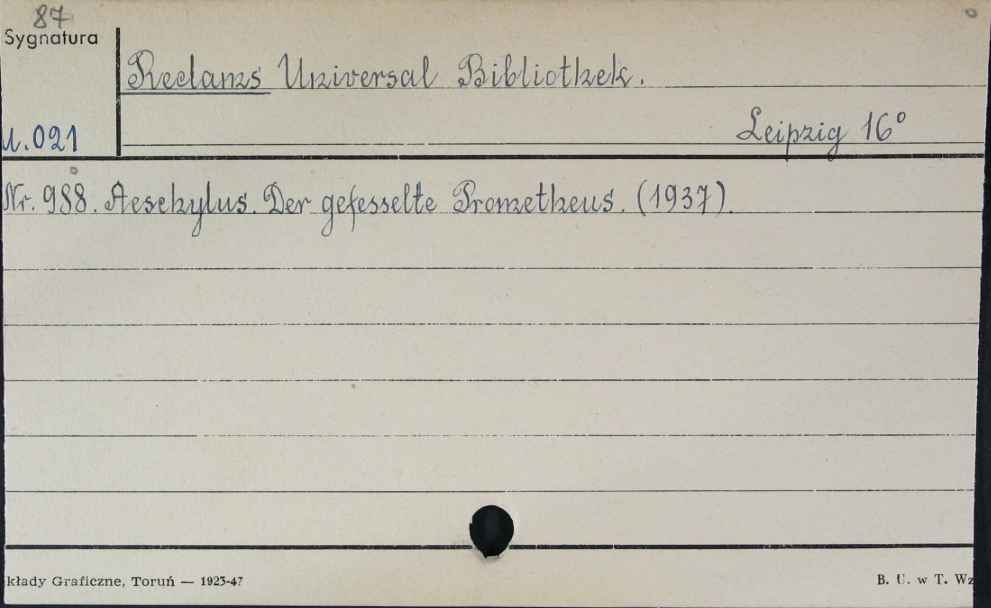 87
Sygnatura
Reclams Universal Bibliothek.
Leipzig 16°
U.021
Nr. 988. Aeschylus. Der gefesselte Prometheus. (1937).
kłady Graficzne, Toruń — 1923-47
B. U. w T. Wz